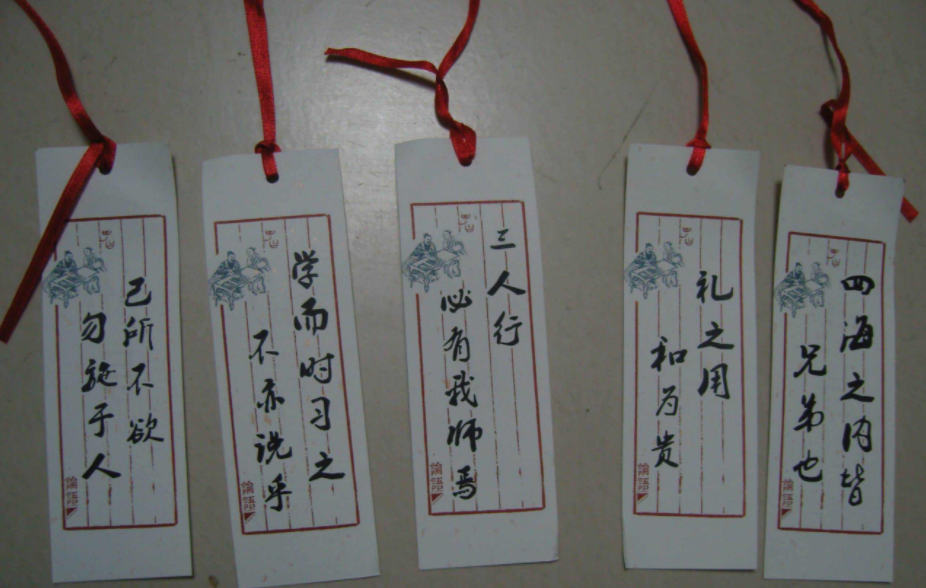 己所不欲
勿施于人
論語
学而时习之
不亦说乎
論語
三人行
必有我师焉
論語
礼之用
和为贵
論語
四海之内皆
兄弟也
論語